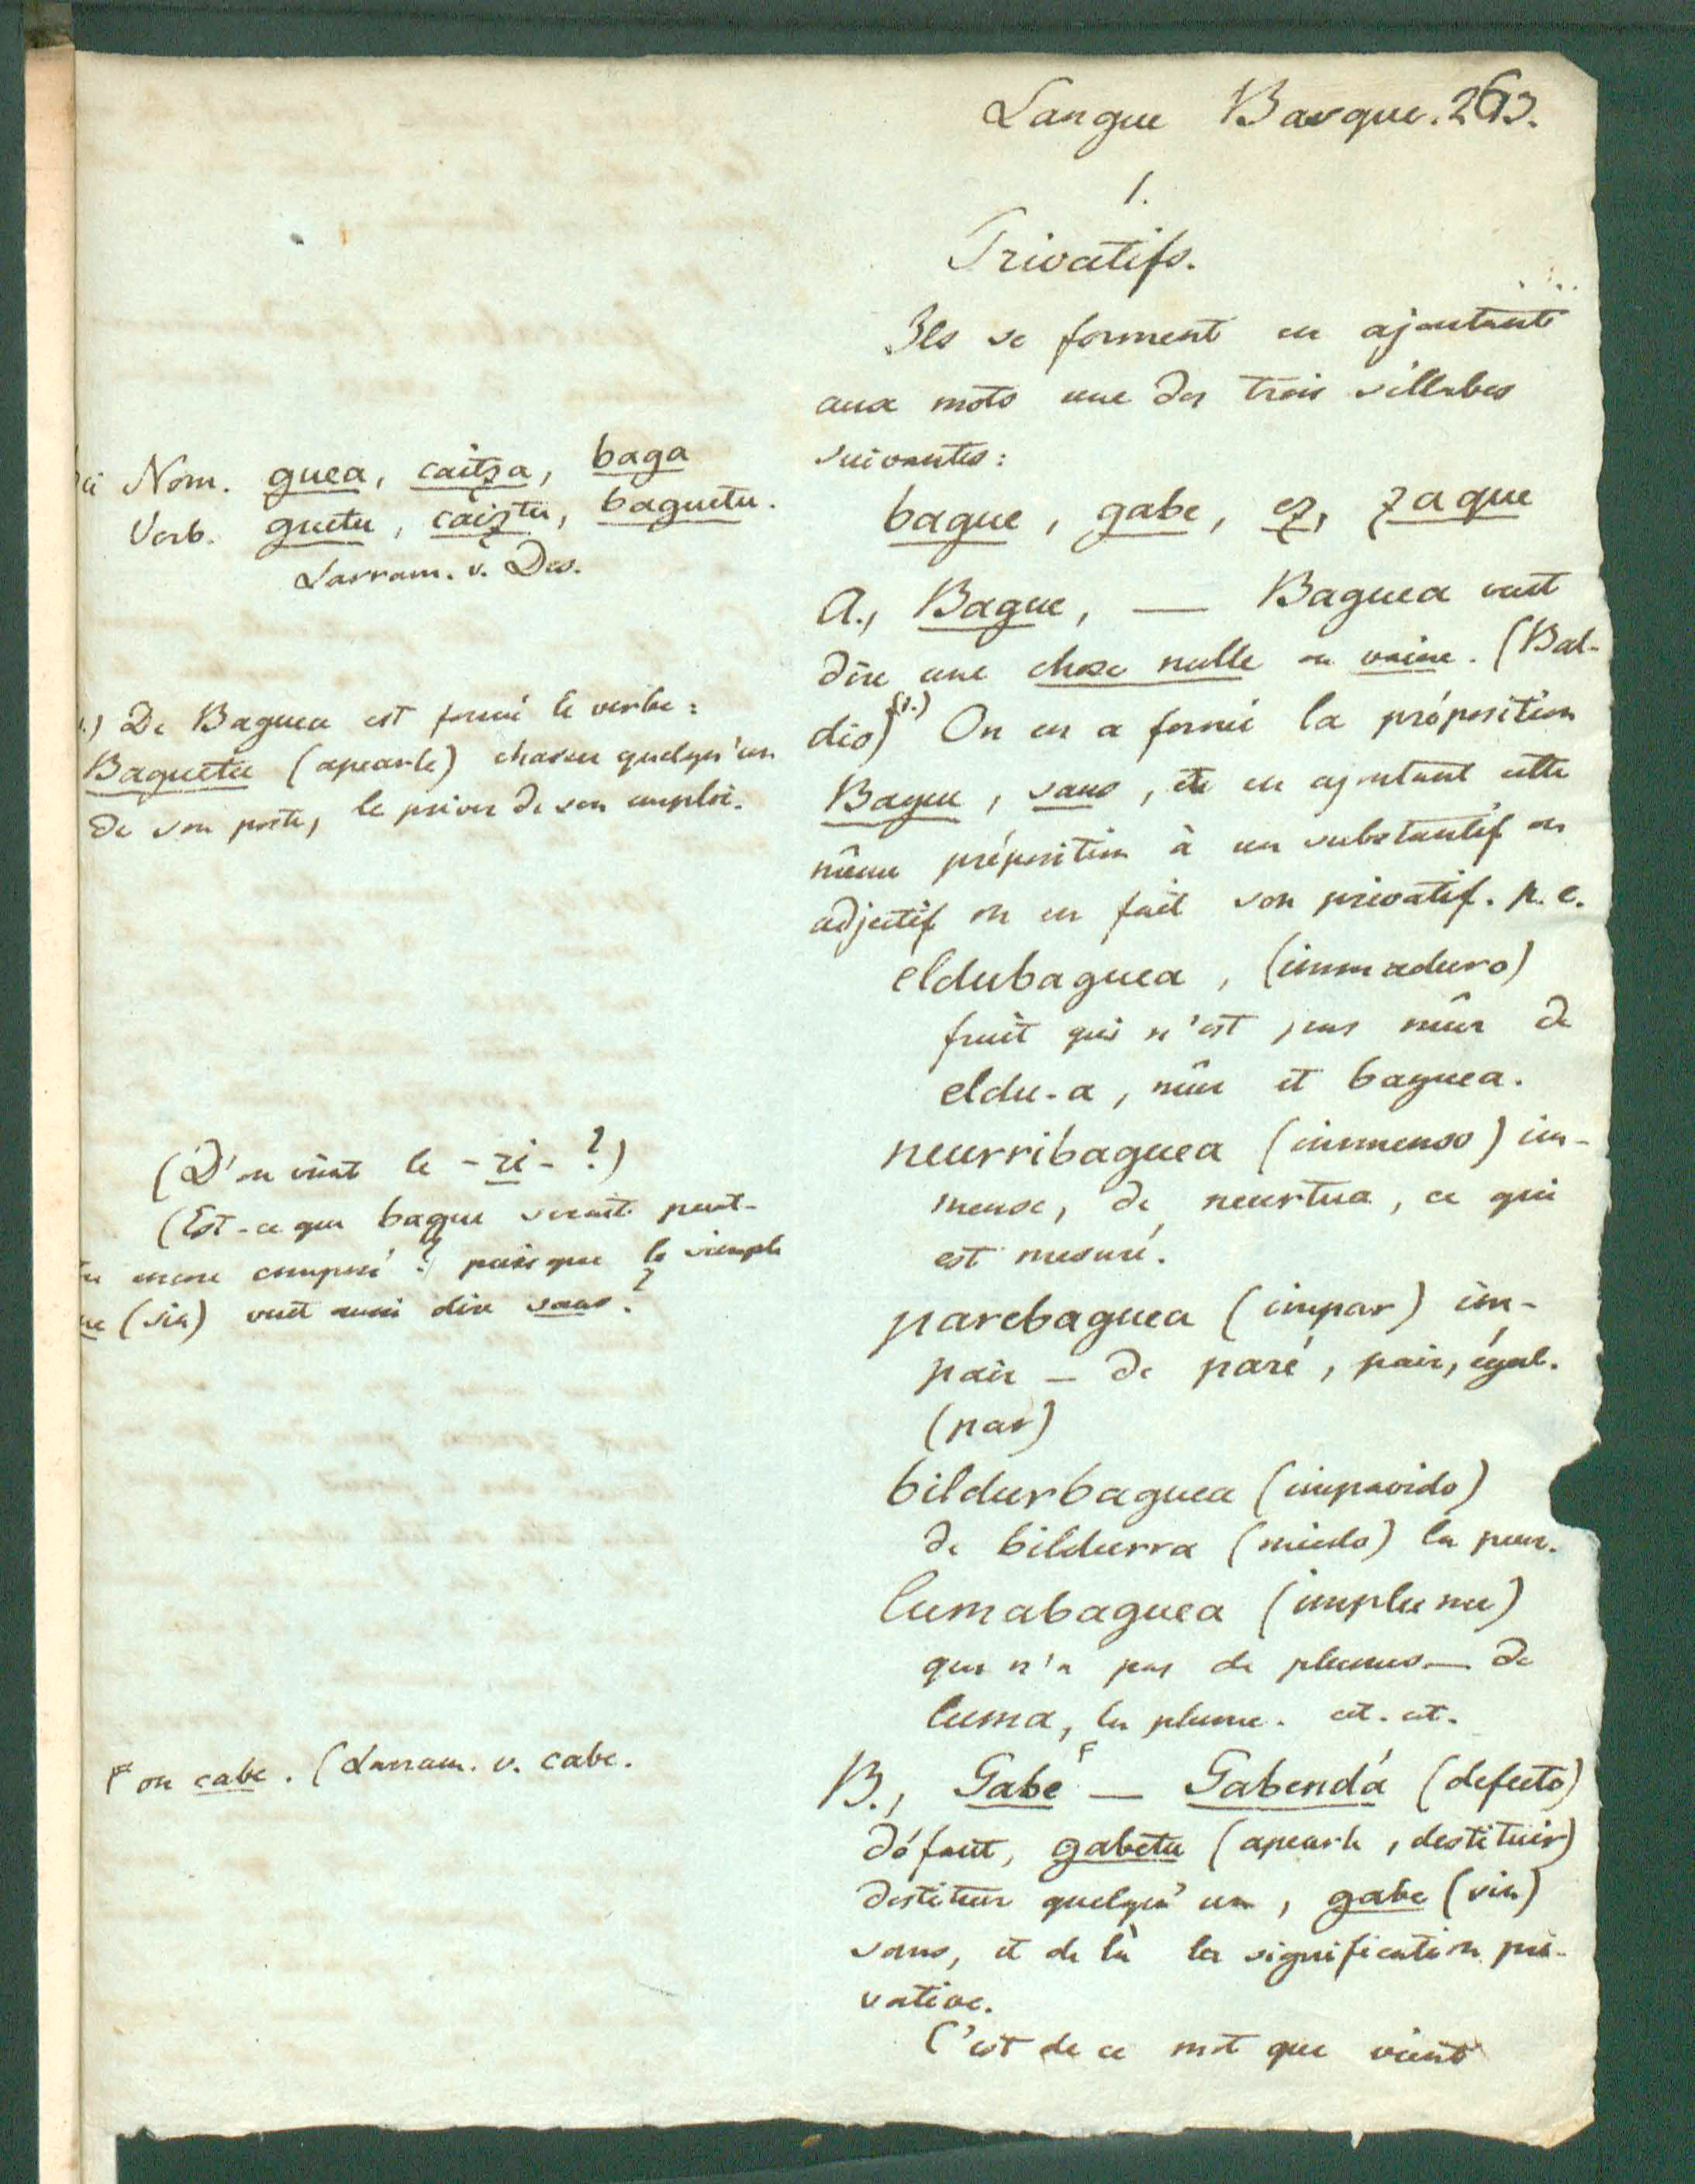 Langue Basque. 263.
1.
Privatifs.
Ils se forment en ajoutant
aux mots une des trois sillabes
suivantes:
bague, gabe, ez, zaque
A., Bague, — Baguea veut
dire une chose nulle ou vaine. (Bal-
dio) (1.) On en a formé la préposition
Bague, sans, et en ajoutant cette
même préposition à un substantif ou
adjectif on en fait son privatif. p. e.
eldubaguea, (immaduro)
fruit qui n'est pas mûr de
eldu-a, mûr et baguea.
neurribaguea (immenso) im-
mense, de neurtua, ce qui
est mesuré.
parebaguea (impar) im-
pair — de paré, pair, égal.
(par)
bildurbaguea (impavido)
de bildurra (miedo) la peur.
lumabaguea (implume)
qui n'a pas de plumes — de
luma, la plume. cet. cet.
B., Gabe F — Gabendá (defecto)
défaut, gabetu (apearle, destituir)
destituer quelqu'un, gabe (sin)
sans, et de là la signification pri-
vative.
C'est de ce mot que vient
Nom. guea, caitza, baga
Verb. guetu, caiztu, baguetu.
Larram. v. Des.
1.) De Baguea est formé le verbe:
Baguetu (apearle) chasser quelqu'un
de son poste, le priver de son emploi.
(D'ou vient le -ri- ?)
(Est-ce que bague serait peut-
encore composé? puisque le simple
(sin) veut aussi dire sans?
F ou cabe. (Larram. v. cabe.